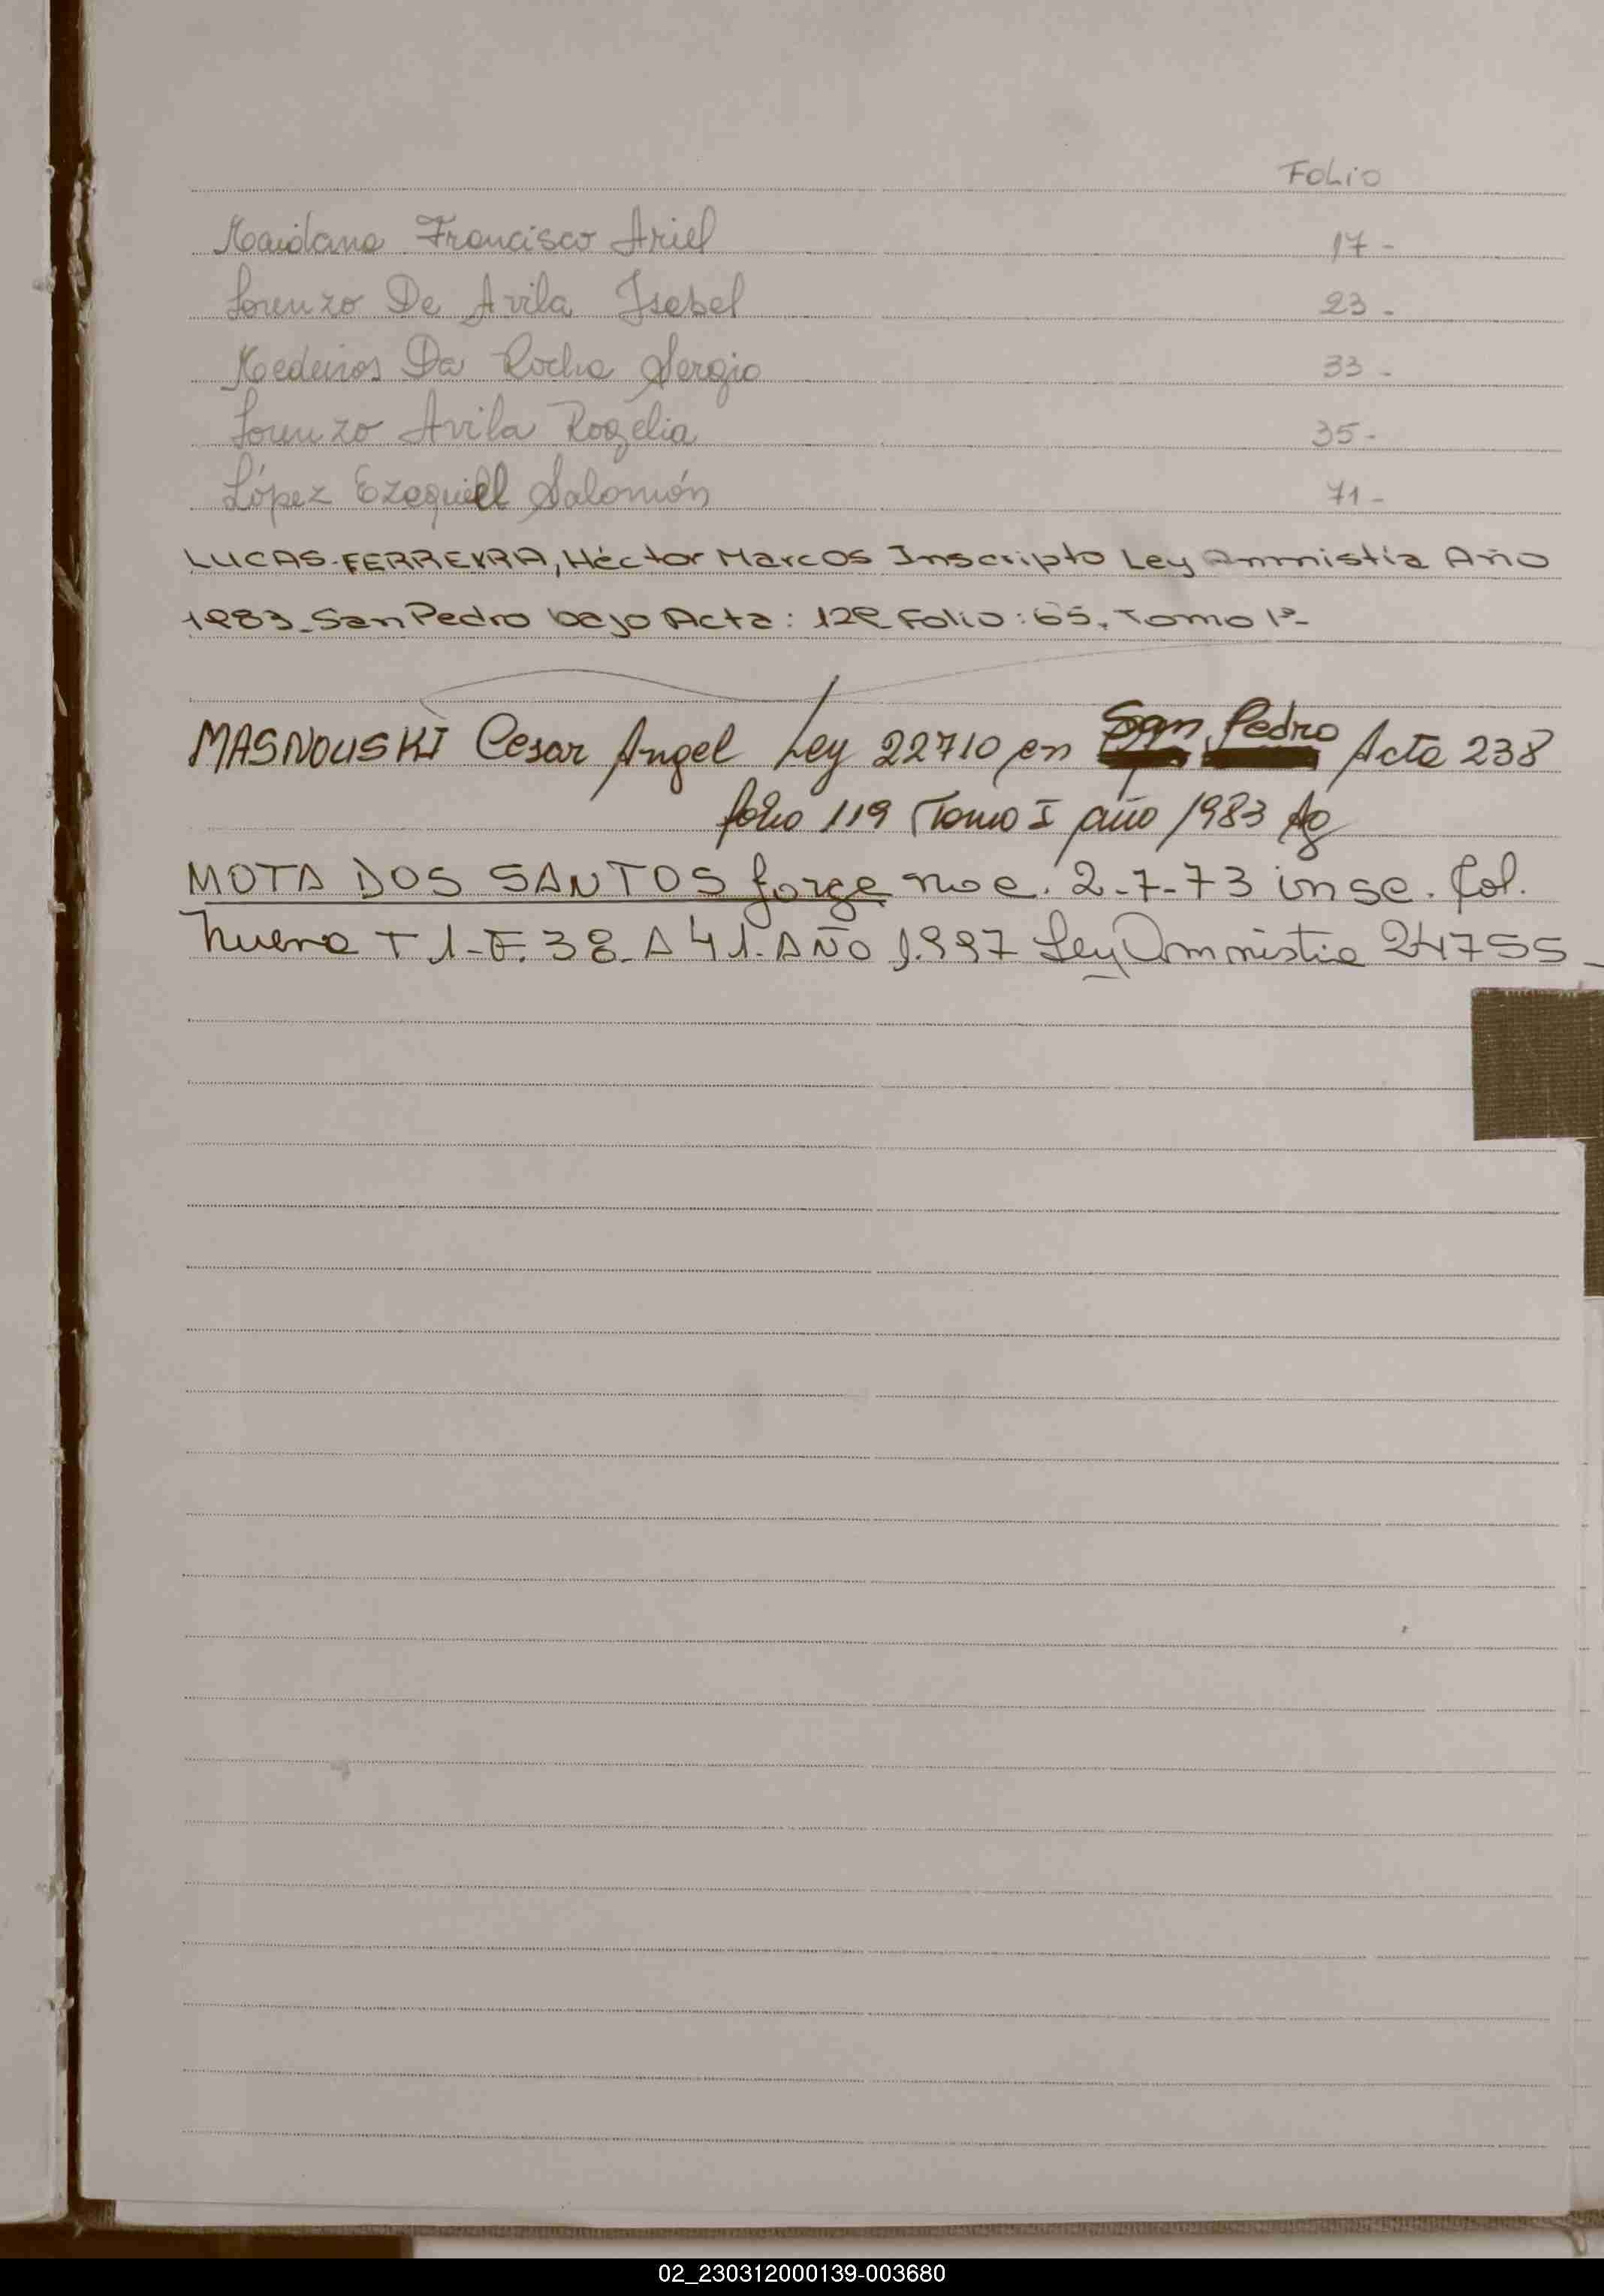 Folio
Maidana Francisco Ariel 17-
Lorenzo De Avila Isabel 23-
Medeiros Da Rocha Sergio 33-
Lorenzo Avila Rogelia 35-
López Ezequiel Salomón 71-
LUCAS-FERREYRA, Héctor Marcos Inscripto Ley Anmistía Año
1983-San Pedro bajo Acta: 129 Folio: 65, Tomo 1º-
MASNOUSKI Cesar Angel Ley 22710 en San Pedro Acta 238
folio 119 Tomo I año 1983
MOTA DOS SANTOS Jorge nac. 2-7-73 insc. Col.
Nueva T 1-F. 38-A 41. AÑO 1.997 Ley Amnistia 24755-
02_230312000139-003680